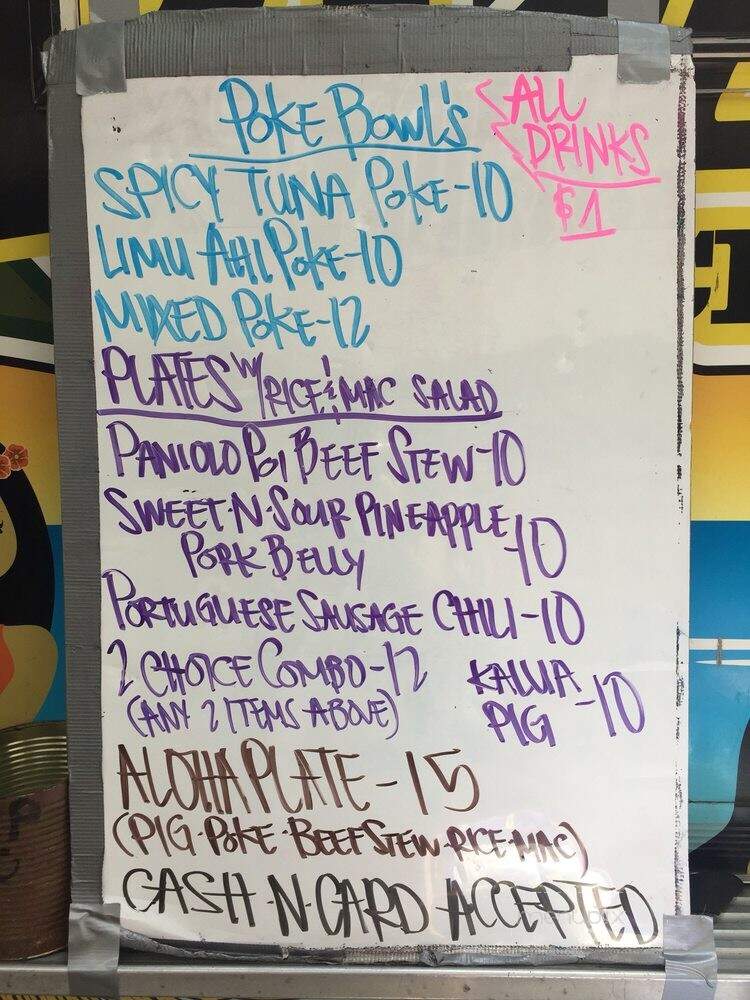 POKE BOWL'S
ALL
DRINKS
$1
SPICY TUNA POKE-10
LIMU AHI POKE-10
MIXED POKE-12
PLATES W/ RICE & MAC SALAD
PANIOLO POI BEEF STEW-10
SWEET-N-SOUR PINEAPPLE
PORK BELLY -10
PORTUGUESE SAUSAGE CHILI-10
2 CHOICE COMBO-12
(ANY 2 ITEMS ABOVE)
KALUA
PIG -10
ALOHA PLATE-15
(PIG-POKE-BEEF STEW-RICE-MAC)
CASH-N-CARD ACCEPTED